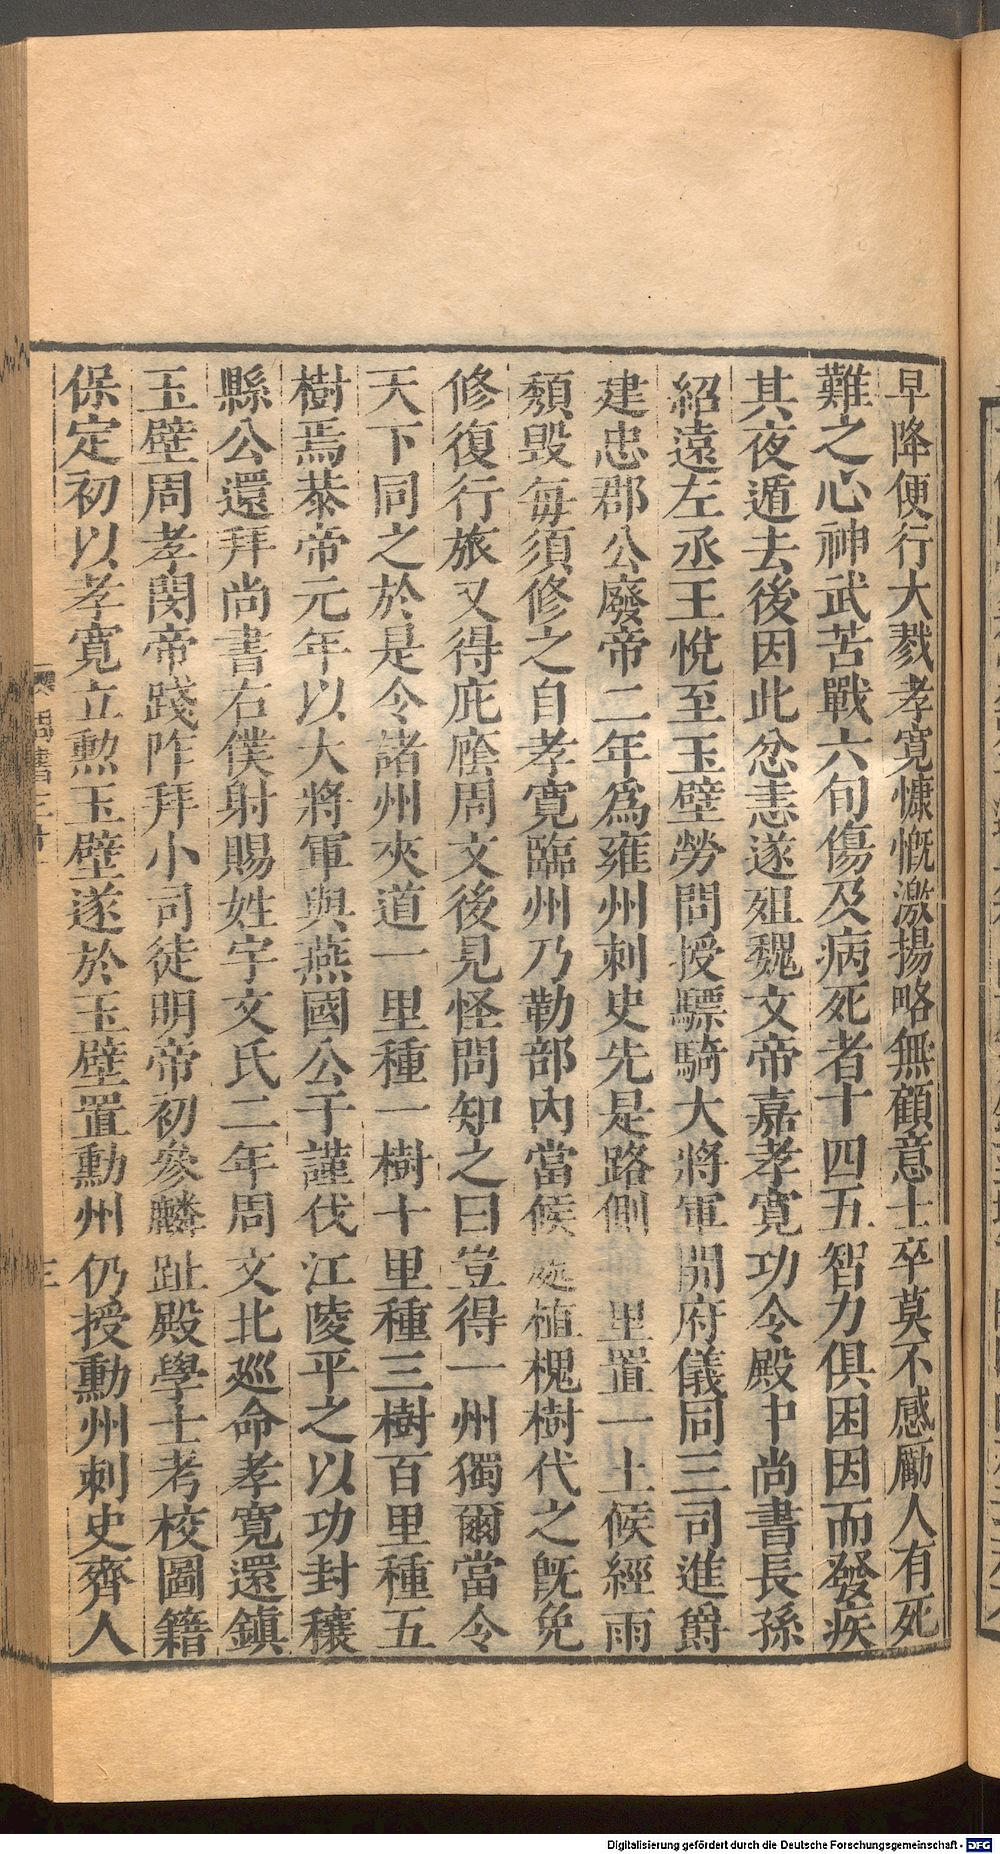 早降便行大戮孝寬慷慨激揚略無顧意士卒莫不感勵人有死
難之心神武苦戰六旬傷及病死者十四五智力俱困因而發疾
其夜遁去後因此忿恚遂殂魏文帝嘉孝寬功令殿中尚書長孫
紹遠左丞王悅至玉壁勞問授驃騎大將軍開府儀同三司進爵
建忠郡公廢帝二年爲雍州刺史先是路側一里置一土候經雨
頽毁毎須修之自孝寛臨州乃勒部內當候處植槐樹代之旣免
修復行旅又得庇廕周文後見怪問知之曰豈得一州獨爾當令
天下同之於是令諸州夾道一里種一樹十里種三樹百里種五
樹焉恭帝元年以大將軍與燕國公于謹伐江陵平之以功封穰
縣公還拜尚書右僕射賜姓宇文氏二年周文北巡命孝寬還鎮
玉壁周孝閔帝踐阼拜小司徒明帝初參麟趾殿學士考校圖籍
保定初以孝寬立勲玉壁遂於玉壁置勳州仍授勳州刺史齊人
周書三十一
三
Digitalisierung gefördert durch die Deutsche Forschungsgemeinschaft - DFG